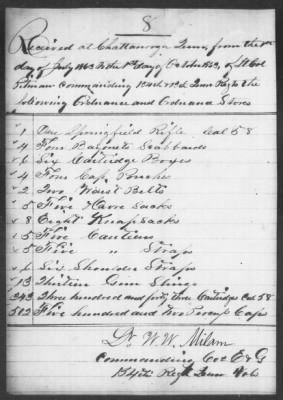 8
Received at Chattanooga Tenn, from the 1st
day of July 1863 to the 1st day of October 1863, of Lt Col
Pitman commanding 154th & 13th Tenn Regts the
following Ordnance and Ordnance Stores
1 One Springfield Rifle Cal 58
4 Four Bayonets Scabbards
6 Six Cartridge Boxes
4 Four Cap Pouches
2 Two Waist Belts
5 Five Haver Sacks
8 Eight Knapsacks
5 Five Canteens
5 Five " Straps
6 Six Shoulder Straps
13 Thirteen Gun Slings
343 Three hundred and forty three Cartridges Cal 58
502 Five hundred and two Percus Caps
W. W. Milam
Commanding Co's E & G
154th Regt Tenn Vols